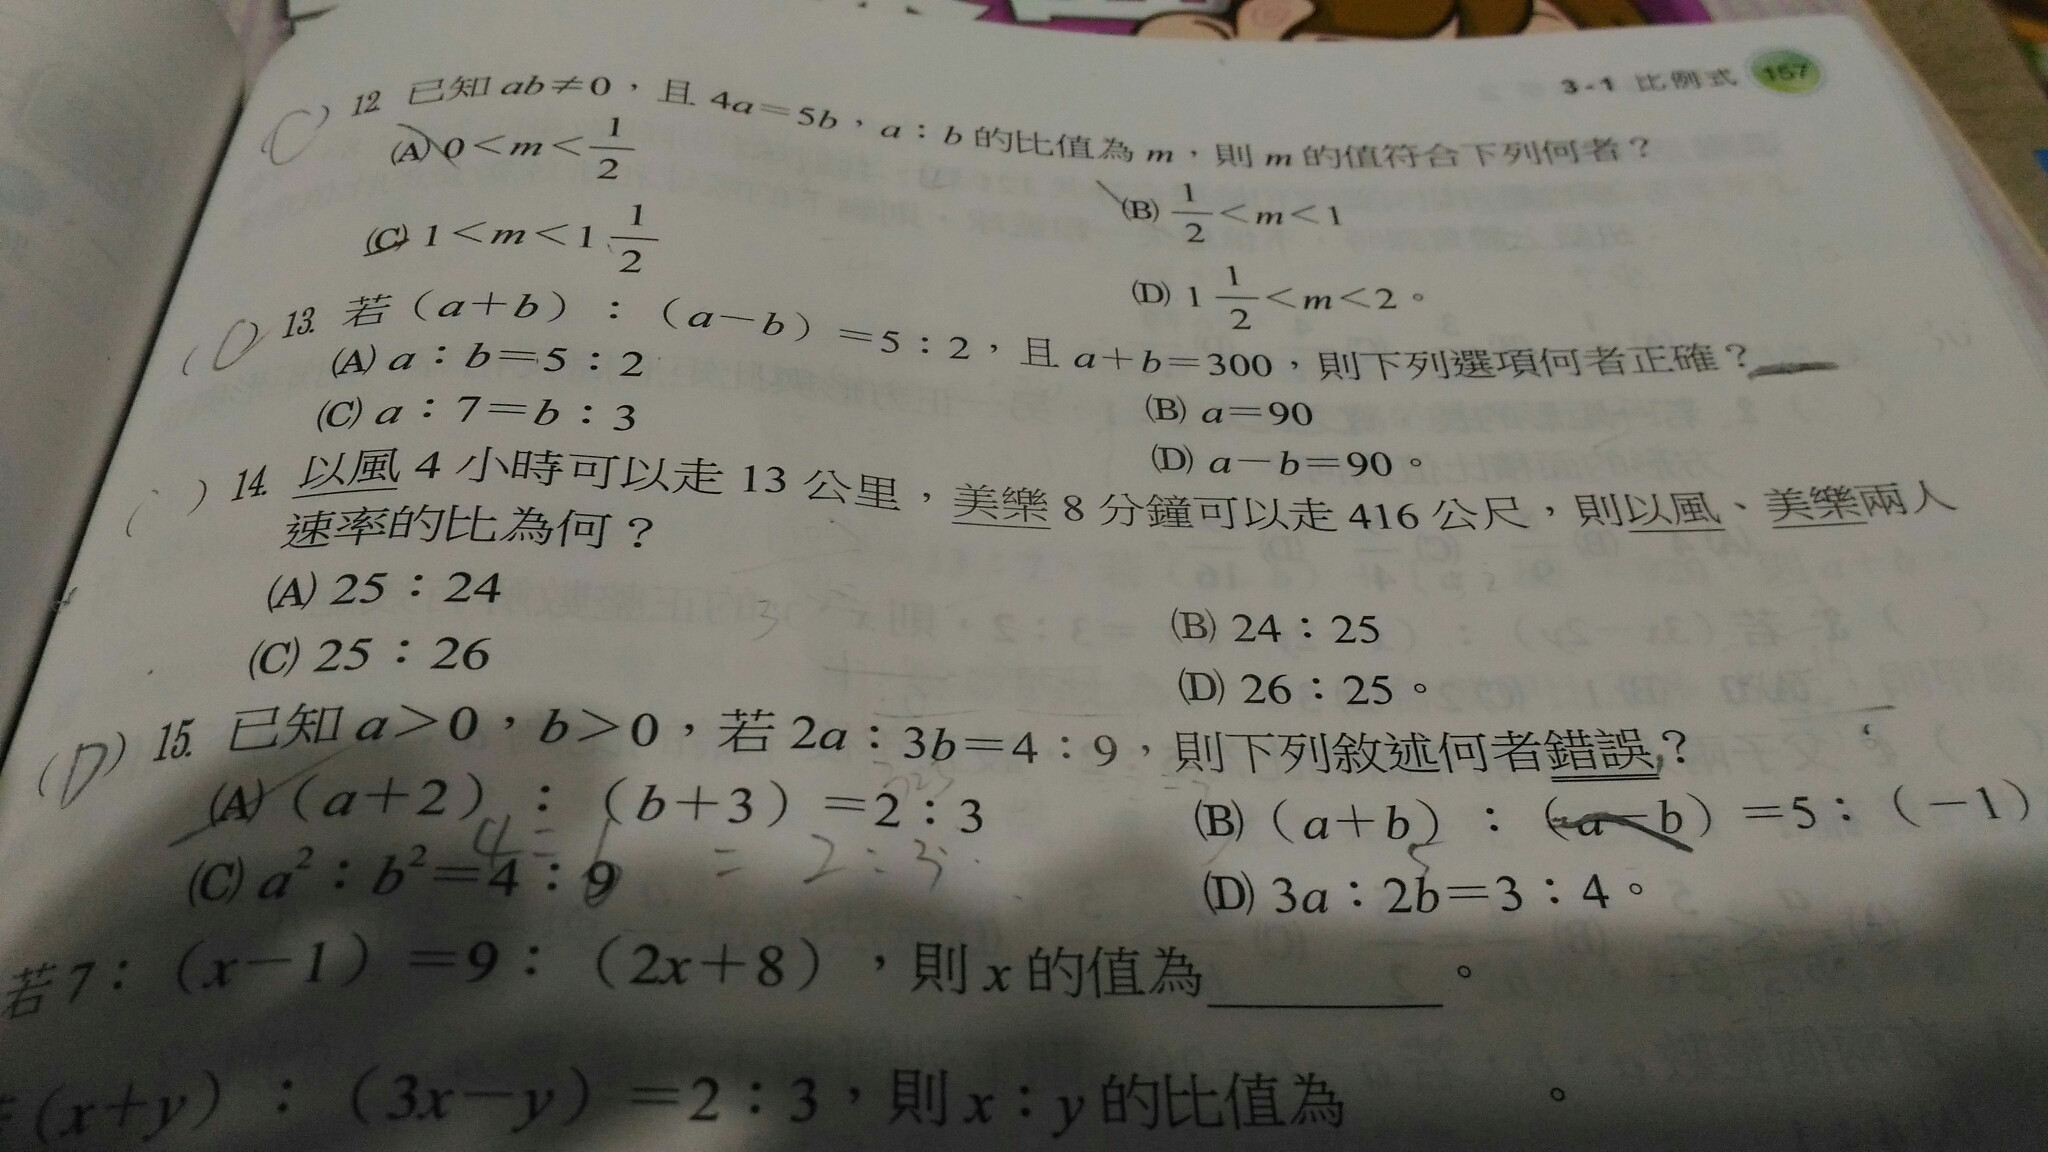 3-1 比例式 157
(C) 12. 已知 ab≠0，且 4a=5b，a：b 的比值為 m，則 m 的值符合下列何者？
(A) 0<m<1/2 (B) 1/2<m<1
(C) 1<m<1 1/2 (D) 1 1/2<m<2。
( ) 13. 若（a+b）：（a-b）=5：2，且 a+b=300，則下列選項何者正確？
(A) a：b=5：2 (B) a=90
(C) a：7=b：3 (D) a-b=90。
( ) 14. 以風 4 小時可以走 13 公里，美樂 8 分鐘可以走 416 公尺，則以風、美樂兩人
速率的比為何？
(A) 25：24 (B) 24：25
(C) 25：26 (D) 26：25。
(D) 15. 已知 a>0，b>0，若 2a：3b=4：9，則下列敘述何者錯誤？
(A)（a+2）：（b+3）=2：3 (B)（a+b）：（a-b）=5：（-1）
= 2：3
(C) a²：b²=4：9 (D) 3a：2b=3：4。
若 7：（x-1）=9：（2x+8），則 x 的值為______。
（x+y）：（3x-y）=2：3，則 x：y 的比值為 。